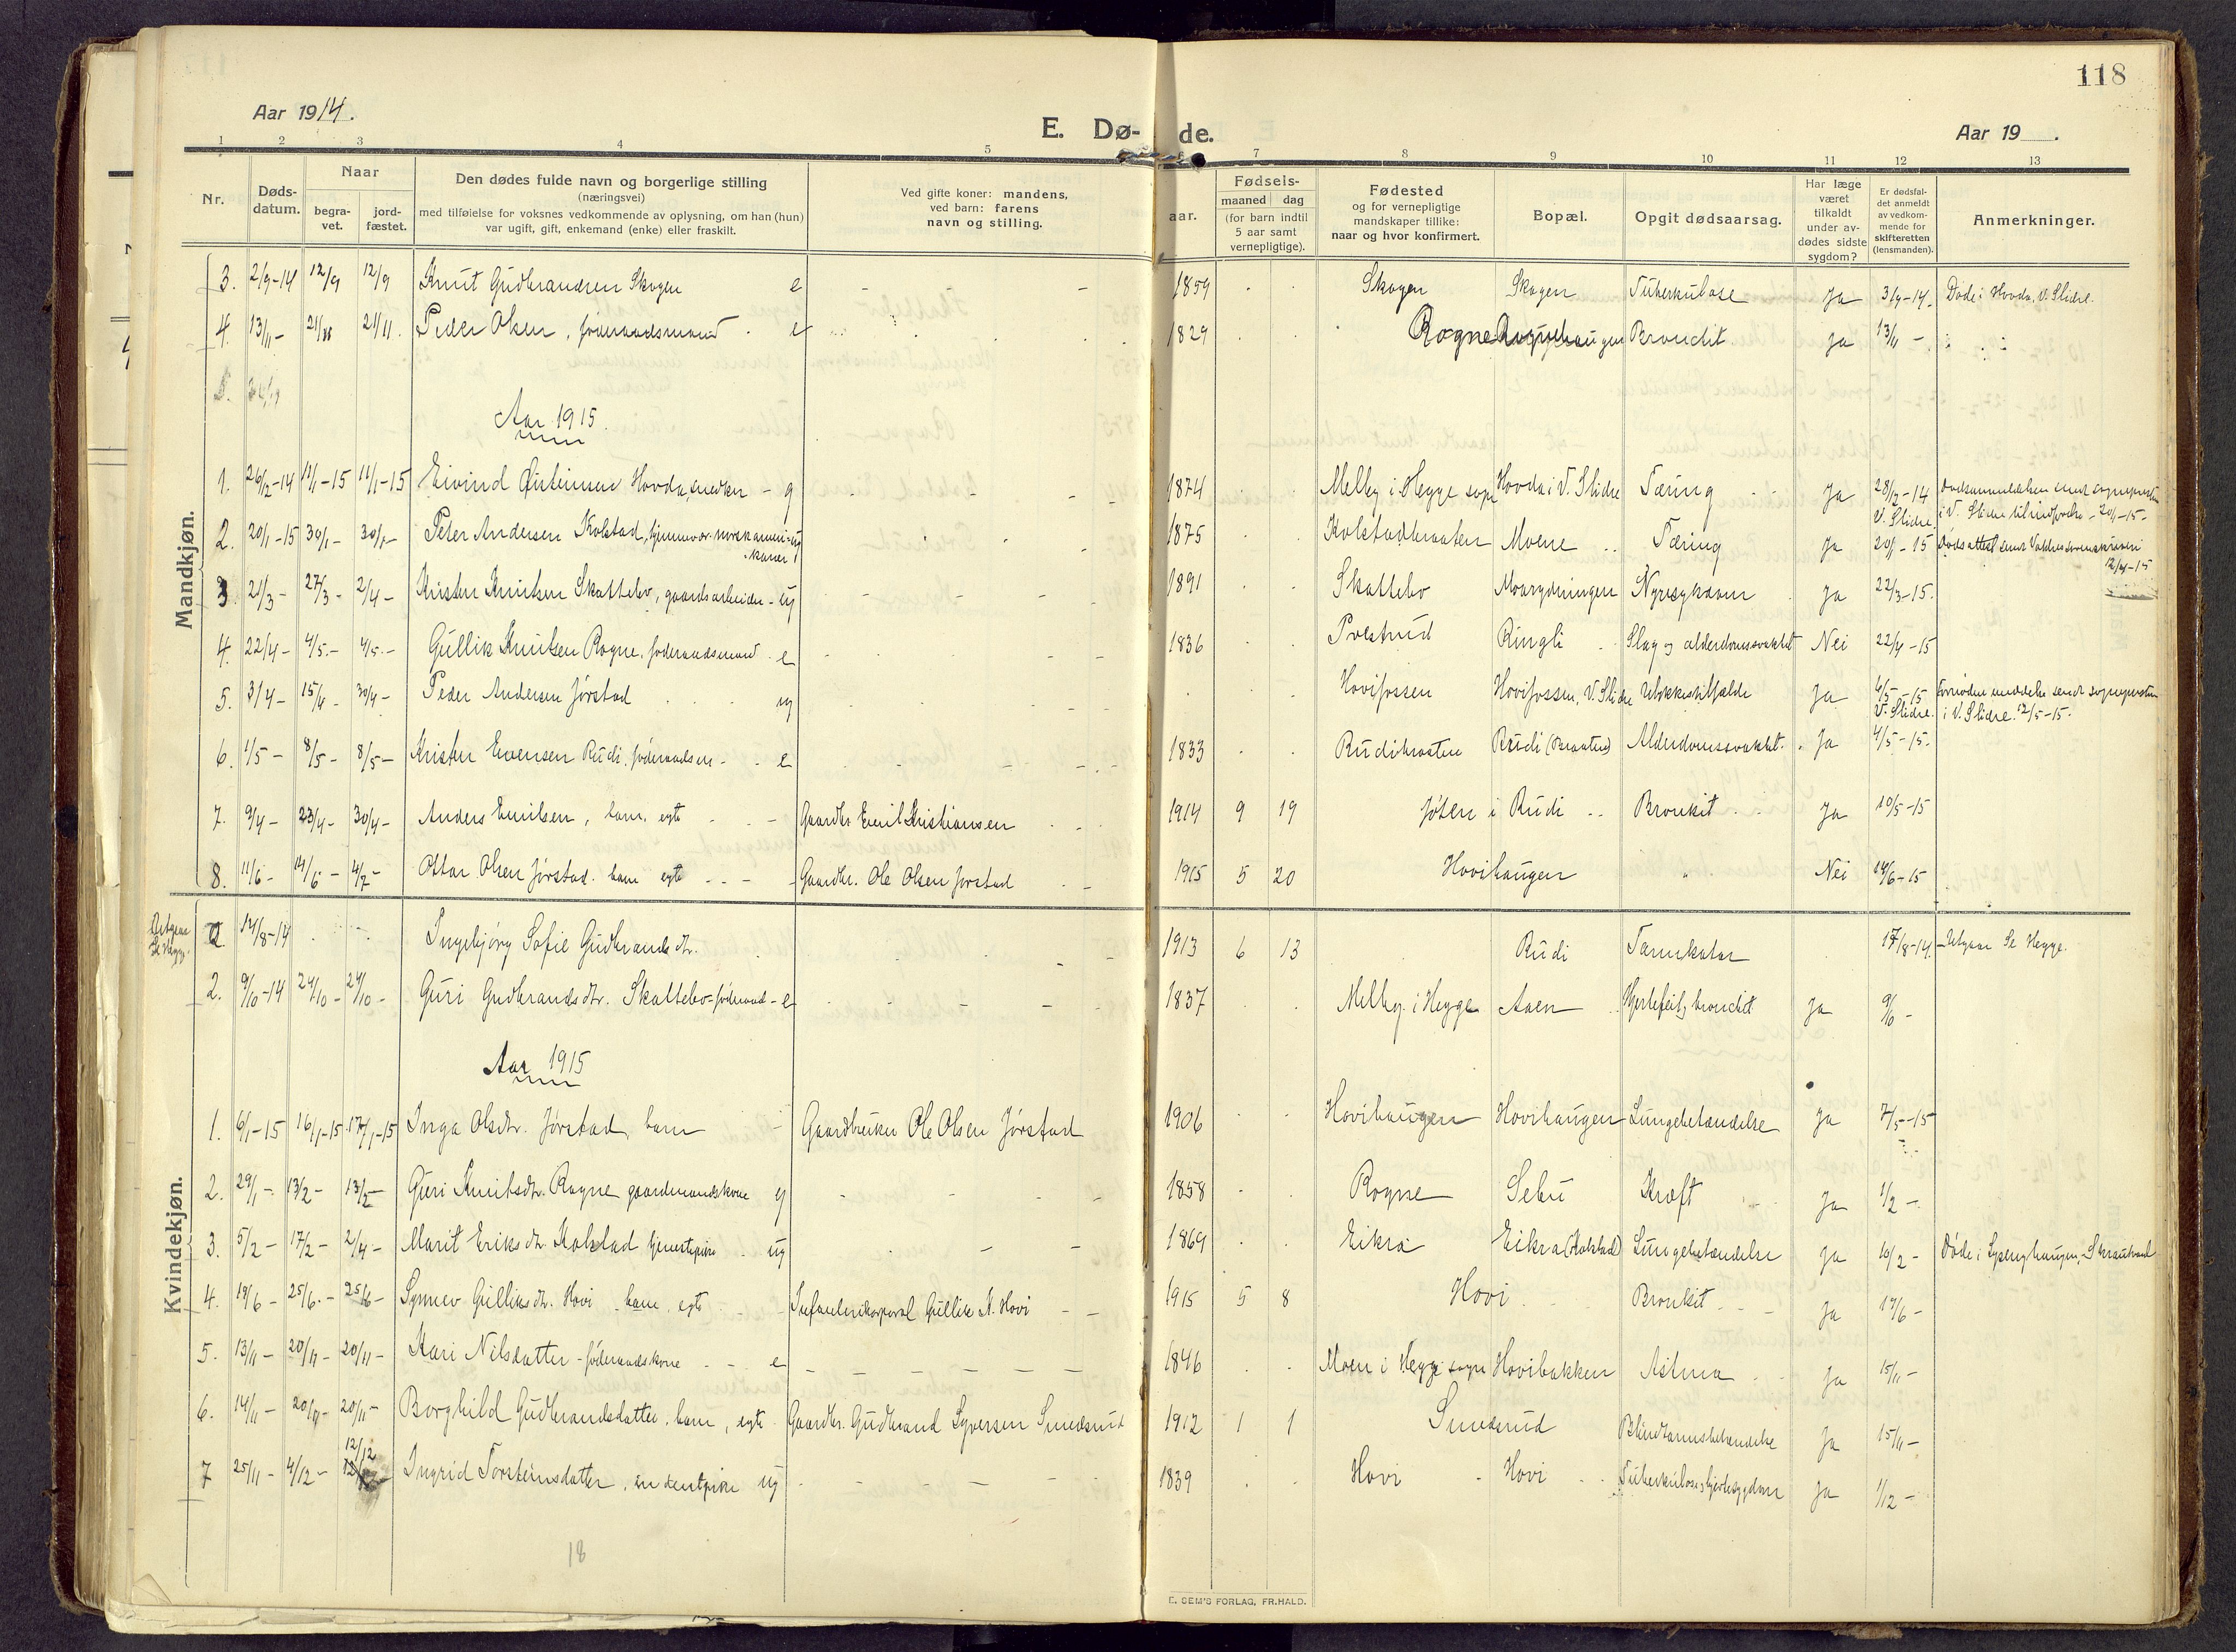 118
Aar 1914.
E. Døde.
Aar 19 .
1 2 3 4 5 7 8 9 10 11 12 13
Nr.
Dødsdatum.
Naar
begravet.
jordfæstet.
Den dødes fulde navn og borgerlige stilling
(næringsvei)
med tilføielse for voksnes vedkommende av oplysning, om han (hun)
var ugift, gift, enkemand (enke) eller fraskilt.
Ved gifte koner: mandens,
ved barn: farens
navn og stilling.
aar.
Fødsels-
maaned dag
(for barn indtil
5 aar samt
vernepligtige).
Fødested
og for vernepligtige
mandskaper tillike:
naar og hvor konfirmert.
Bopæl.
Opgit dødsaarsag.
Har læge
været
tilkaldt
under av-
dødes sidste
sygdom?
Er dødsfal-
det anmeldt
av vedkom-
mende for
skifteretten
(lensmanden).
Anmerkninger.
Mandkjøn.
3. 2/9-14 12/9 12/9 Knut Gudbrandsen Skogen e - - 1859 Skogen Skogen Tuberkulose Ja 3/9-14. Døde i Hovda, V. Slidre.
4. 13/11- 21/11 21/11. Peder Olsen, föderaadsmand e 1829 Rogne Rognehaugen Bronchit Ja 13/11 -
5.
Aar 1915.
1. 26/12-14 11/1-15 11/1-15 Eivind Östeinsen Hovda, snedker - g 1874 Melby i Hegge sogn Hovda i V. Slidre Tæring Ja 28/12-14 V. Slidre. Dødsanmeldelsen sendt sognepresten i V. Slidre til indførelse - 20/1-15.
2. 20/1-15 30/1- 30/1- Peter Andersen Kolstad, hjemmevær. norskamerikaner ug 1875 Kolstadbraaten Moene Tæring Ja 20/1-15 Dødsattest sendt Valdres sorenskriveri 12/4-15
3. 21/3- 27/3- 2/4- Kristen Knutsen Skattebo, gaardsarbeider - ug 1891 Skattebo Moarydningen Nyresykdom Ja 22/3-15.
4. 22/4- 4/5.- 4/5.- Gullik Knutsen Rogne, föderaadsmand e 1836 Polstrud Ringli Slag og alderdomssvakhet Nei 22/4-15
5. 3/4- 15/4- 30/4- Peder Andersen Jörstad ug Hovifossen Hovifossen, V. Slidre Ulykkestilfælde Ja 6/5-15 V. Slidre. Fornöden meddelelse sendt sognepresten i V. Slidre. 12/5-15.
6. 1/5- 8/5- 8/5- Kristen Evensen Rudi, föderaadsm - e 1833 Rudibraaten Rudi (Braaten) Alderdomssvakhet. Ja 4/5-15.
7. 9/4- 23/4- 30/4- Anders Emilsen, barn, egte Gaardbr. Emil Kristiansen 1914 9 19 Jöten i Rudi Bronkit Ja 10/5-15
8. 11/6- 14/6- 4/7- Ottar Olsen Jörstad. barn egte Gaardbr. Ole Olsen Jorstad 1915 5 20 Hovihaugen " Nei 14/6-15
Kvindekjøn.
Utgaar Se Hegge. 2. 14/8-14 Ingebjörg Sofie Gudbrandsdtr. 1913 6 13 Rudi Tarmkatar 17/8-14. - Utgaar Se Hegge.
2. 9/10-14 24/10- 24/10- Guri Gudbrandsdtr. Skattebo - föderaad - e 1837 Melby i Hegge Aaen Hjertefeil, bronchit Ja 9/10 -
Aar 1915
1. 6/1-15 16/1-15. 17/1-15 Inga Olsdtr. Jörstad, barn Gaardbruker Ole Olsen Jörstad 1906 Hovihaugen Hovihaugen Lungebetændelse Ja 7/5-15
2. 29/1- 13/2- 13/2- Guri Knutsdtr. Rogne gaardmandskone g 1858 Rogne Sebu Kræft Ja 1/2 -
3. 5/2- 17/2- 2/4- Marit Eriksdtr. Kolstad tjenestepike ug 1869 Eikra Eikra (Kolstad) Lungebetændelse Ja 10/2-
4. 19/6- 25/6.- 25/6- Synnev Gulliksdtr. Hovi - barn, egte Infanterikorporal Gullik N. Hovi 1915 5 8 Hovi Bronkit Ja 19/6-
5. 13/11- 20/11- 20/11- Kari Nilsdatter - föderaadskone e 1846 Moen i Hegge sogn Hovibakken Astma Ja 15/11-
6. 14/11- 20/11- 20/11- Borghild Gudbrandsdatter, barn, egte Gaardbr. Gudbrand Syversen Smedsrud 1912 1 1 Smedsrud Blindtarmsbetændelse Ja 15/11-
7 25/11- 4/12- 12/12 Ingrid Torsteinsdatter, ug 1839 Hovi Hovi Tuberkulose, hjertesygdom Ja 1/12-
18
E. SEM'S FORLAG, FR.HALD.